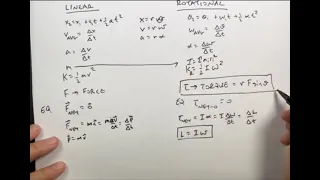 LINEAR
x₂ = x₁ + v₁t + ½at²
v_AVG = Δx/Δt
a = Δv/Δt
m
K = ½mv²
F → FORCE
EQ F_NET = 0
F_NET = ma = mΔv/Δt = Δp/Δt
p = mv
x = rθ
v = rω
a = rα
ROTATIONAL
θ₂ = θ₁ + ω₁t + ½αt²
ω_AVG = Δθ/Δt
α = Δω/Δt
K = ½Iω²
τ → TORQUE = rFsinθ
EQ τ_NET = 0
τ_NET = Iα = IΔω/Δt = ΔL/Δt
L = Iω